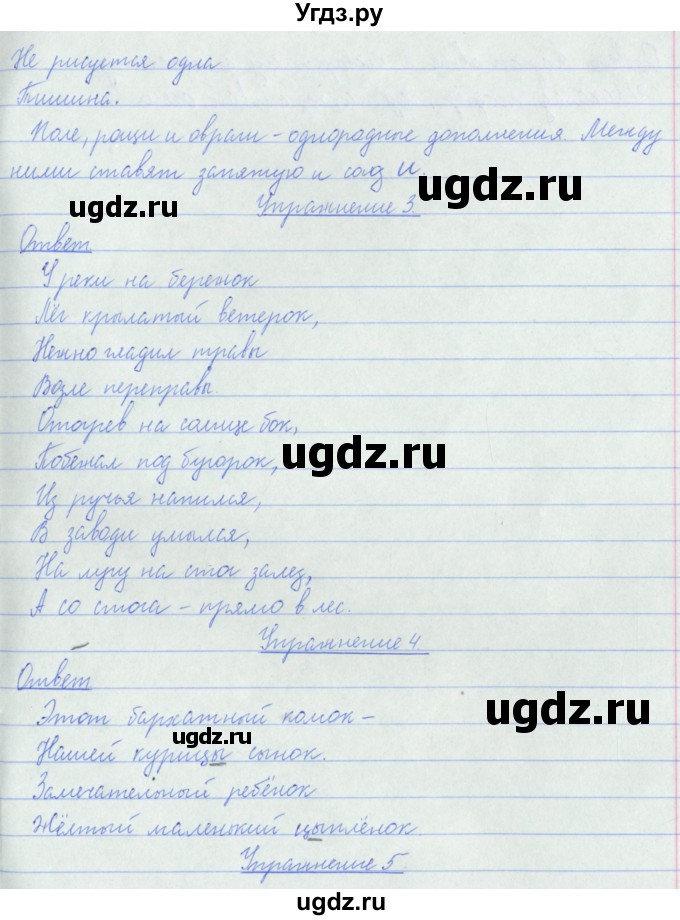 Угдз.ру
Не рисуется одна
Тишина.
Поле, рощи и овраги - однородные дополнения. Между
ними ставят запятую и союз и.
ugdz.ru
ugdz.ru
Упражнение 3.
Ответ
У реки на бережок
Лёг крылатый ветерок,
Нежно гладил травы
Возле переправы.
Отогрев на солнце бок,
ugdz.ru
Побежал под бугорок,
Из ручья напился,
В заводи умылся,
На лугу на стог залез,
А со стога - прямо в лес.
Упражнение 4.
Ответ
Этот бархатный комок -
ugdz.ru
ugdz.ru
Нашей курицы сынок.
Замечательный ребёнок
Жёлтый маленький цыплёнок.
Упражнение 5.
ugdz.ru